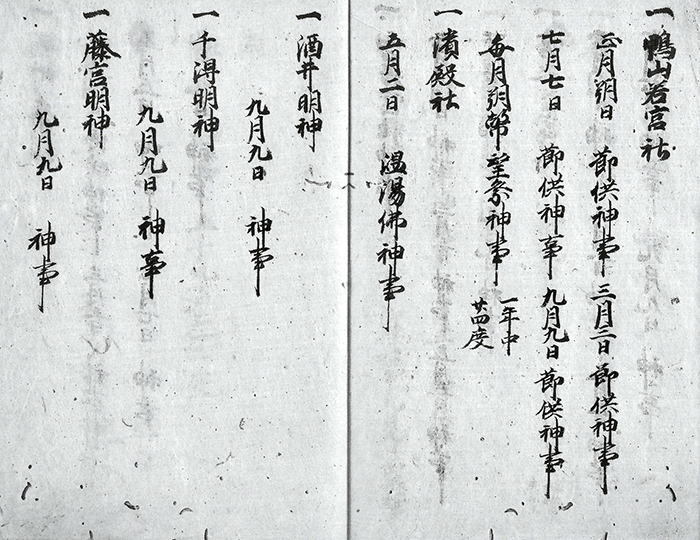 一鴨山若宮社
正月朔日 節供神事 三月三日 節供神事
七月七日 節供神事 九月九日 節供神事
毎月朔幣望祭神事 一年中
廿四度
一濱殿社
五月二日 温湯佛神事
一酒井明神
九月九日 神事
一千得明神
九月九日 神事
一藤宮明神
九月九日 神事